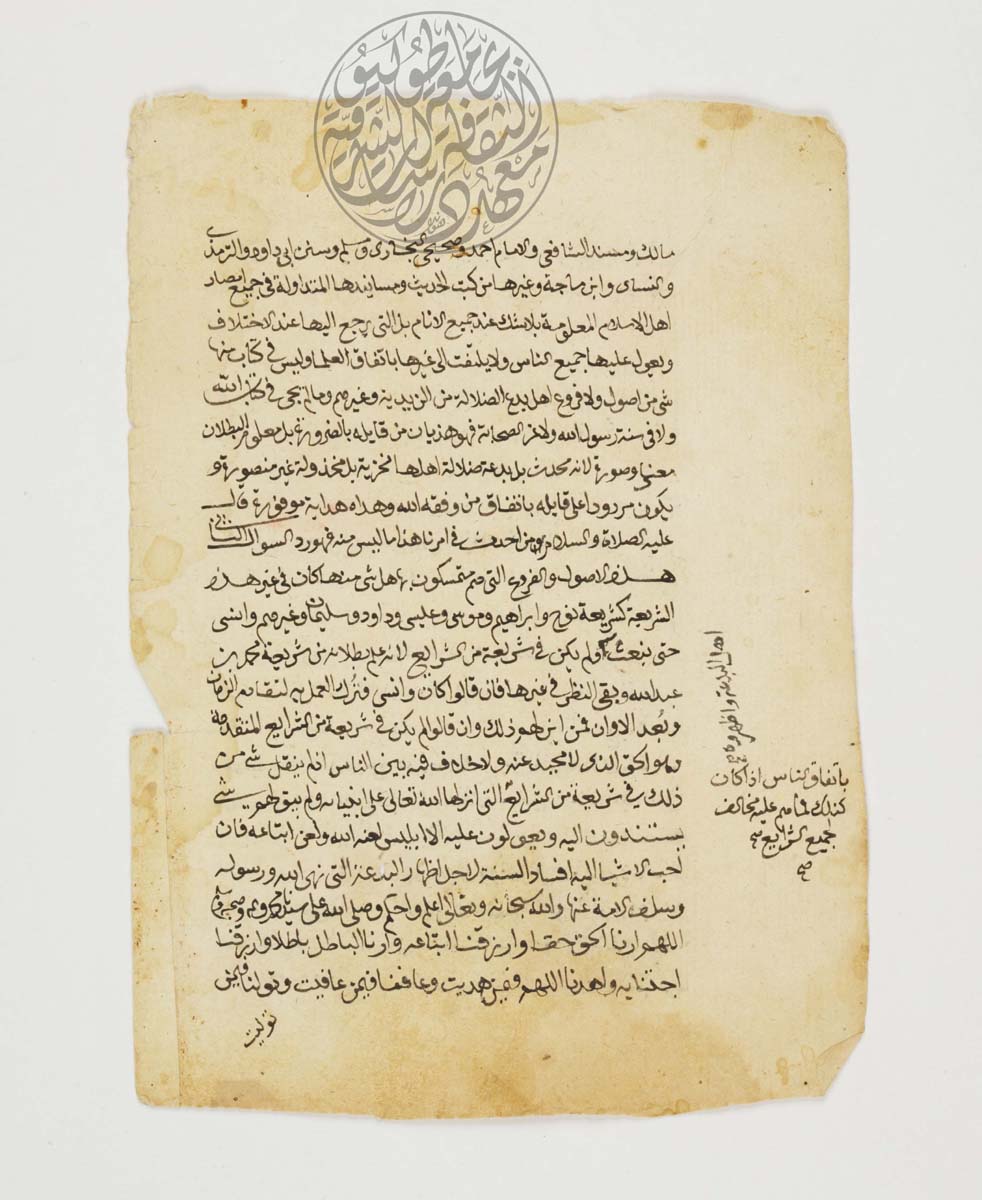 مالك ومسند الشافعي والامام احمد وصحيحي البخاري ومسلم وسنن ابي داود والترمذي
والنساي وابن ماجة وغيرها من كتب الحديث ومسانيدها المتداولة في جميع امصار
اهل الاسلام المعلومة بلا شك عند جميع الانام بل التي يرجع اليها عند الاختلاف
ويعول عليها جميع الناس ولا يلتفت الى غيرها باتفاق العلما وليس في كتاب منها
شي من اصول ولا فروع اهل بدع الضلالة من الزيدية وغيرهم وما لم يجي في كتاب الله
ولا في سنة رسول الله ولا عن الصحابة فهو هذيان من قايله بالضرورة بل معلوم البطلان
معنى وصورة لانه محدث بل بدعة ضلالة اهلها مخزية بل مخذولة غير منصورة و
يكون مردودا على قايله باتفاق من وفقه الله وهداه هداية موفورة قال
عليه الصلاة والسلام ومن احدث في امرنا هذا ما ليس منه فهو رد السوال الثاني
هذه الاصول والفروع التي هم متمسكون بها هل شي منها كان في غير هذه
الشريعة كشريعة نوح وابراهيم وموسى وعيسى وداود وسليمان وغيرهم وانسى
حتى او لم يكن في شريعة من الشرايع لانه علم بطلانه من شريعة محمد بن
عبد الله وبقي النظر في غيرها فان قالوا كان وانسي فترك العمل به لتقادم الزمان
وبعد الاوان فمن اين لهم ذلك وان قالوا لم يكن في شريعة من الشرايع المتقدمة
فهو الحق الذي لا محيد عنه ولا خلاف فيه بين الناس اذ لم ينقل شي من
ذلك في شريعة من الشرايع التي انزلها الله تعالى على انبيائه ولم يبق لهم شي
يستندون اليه ويعولون عليه الا ابليس لعنه الله ولعن اتباعه فان
احب الاشيا اليه افساد السنة لاجل اظهار البدعة التي نهى الله ورسوله
وسلف الامة عنها والله سبحانه وتعالى اعلم واحكم وصلى الله على سيدنا محمد وآله وصحبه وسلم
اللهم ارنا الحق حقا وارزقنا اتباعه وارنا الباطل باطلا وارزقنا
اجتنابه واهدنا اللهم فيمن هديت وعافنا فيمن عافيت وتولنا فيمن
توليت
اهل البدعة واظهروه
باتفاق الناس اذا كان
كذلك فما هم عليه مخالف
جميع الشرايع صح
صح
معهد الثقافة والدراسات الشرقية
جامعة طوكيو